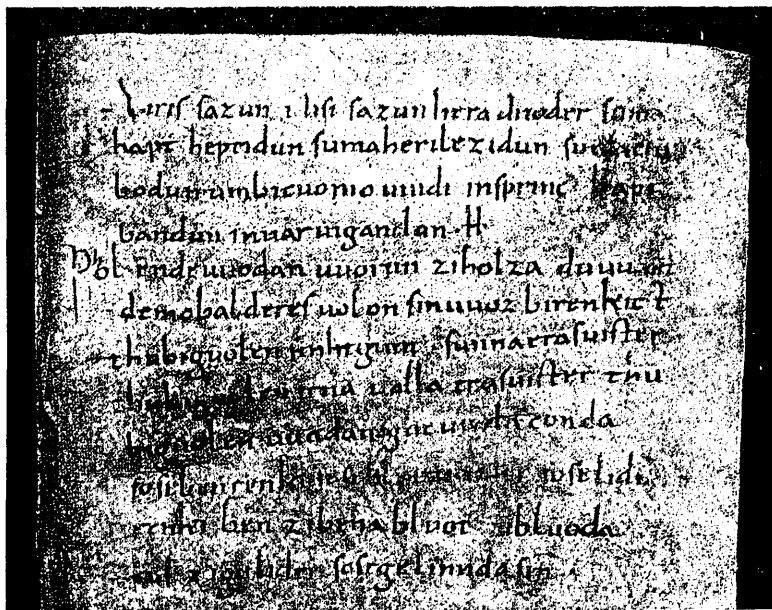 Eiris sazun idisi sazun hera duoder suma
hapt heptidun sumaherilezidun sumaclu
bodun umbicuonio uuidi insprinc hapt
bandun inuar uigandun ·H·
Phol endeuuodan uuorun ziholza du uuart
demobalderes uolon sinuuoz birenkit
thubiguolen sinhtgunt · sunnaerasuister
thubiguolen friia uolla erasuister thu
biguolen uuodan uuolaconda
sosebenrenki soselidi
renki ben zibena bluot zibluoda
lid zigeliden sosegelimida sin ·